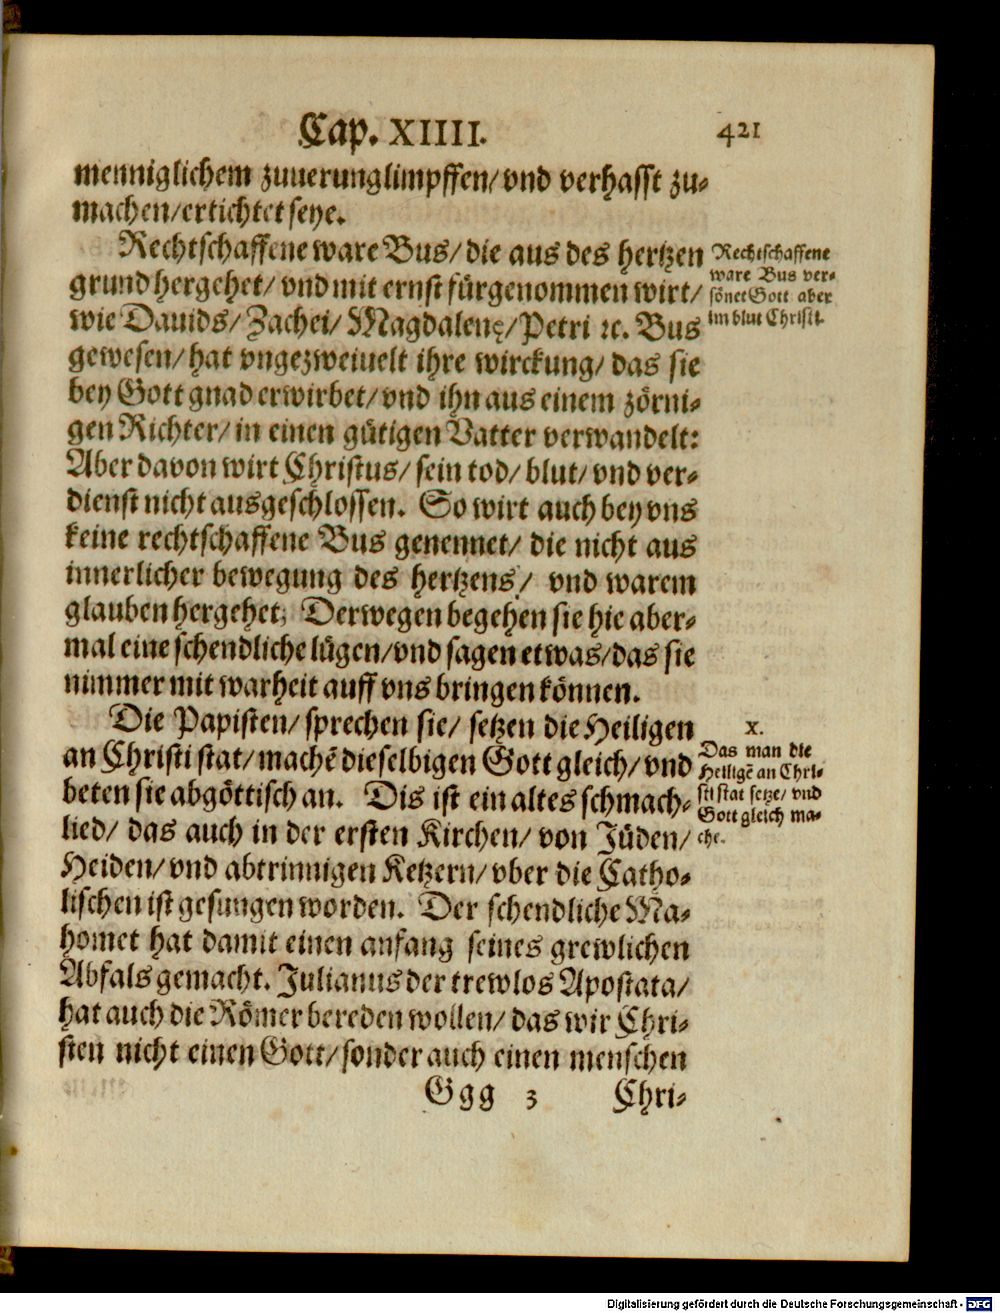 Cap. XIIII. 421
menniglichem zuuerunglimpffen/ vnd verhasst zu-
machen/ ertichtet seye.
Rechtschaffene ware Bus/ die aus des hertzen
grund hergehet/ vnd mit ernst fürgenommen wirt/
wie Dauids/ Zachei/ Magdalenę/ Petri ꝛc. Bus
gewesen/ hat vngezweiuelt ihre wirckung/ das sie
bey Gott gnad erwirbet/ vnd ihn aus einem zörni-
gen Richter/ in einen gütigen Vatter verwandelt:
Aber davon wirt Christus/ sein tod/ blut/ vnd ver-
dienst nicht ausgeschlossen. So wirt auch bey vns
keine rechtschaffene Bus genennet/ die nicht aus
innerlicher bewegung des hertzens/ vnd warem
glauben hergehet; Derwegen begehen sie hie aber-
mal eine schendliche lügen/ vnd sagen etwas/ das sie
nimmer mit warheit auff vns bringen können.
Rechtschaffene
ware Bus ver-
sönet Gott aber
im blut Christi.
Die Papisten/ sprechen sie/ setzen die Heiligen
an Christi stat/ machē dieselbigen Gott gleich/ vnd
beten sie abgöttisch an. Dis ist ein altes schmach-
lied/ das auch in der ersten Kirchen/ von Jüden/
Heiden/ vnd abtrinnigen Ketzern/ vber die Catho-
lischen ist gesungen worden. Der schendliche Ma-
homet hat damit einen anfang seines grewlichen
Abfals gemacht. Julianus der trewlos Apostata/
hat auch die Römer bereden wollen/ das wir Chri-
sten nicht einen Gott/ sonder auch einen menschen
X.
Das man die
Heiligē an Chri-
sti stat setze/ vnd
Gott gleich ma-
che.
Ggg 3 Chri-
Digitalisierung gefördert durch die Deutsche Forschungsgemeinschaft - DFG